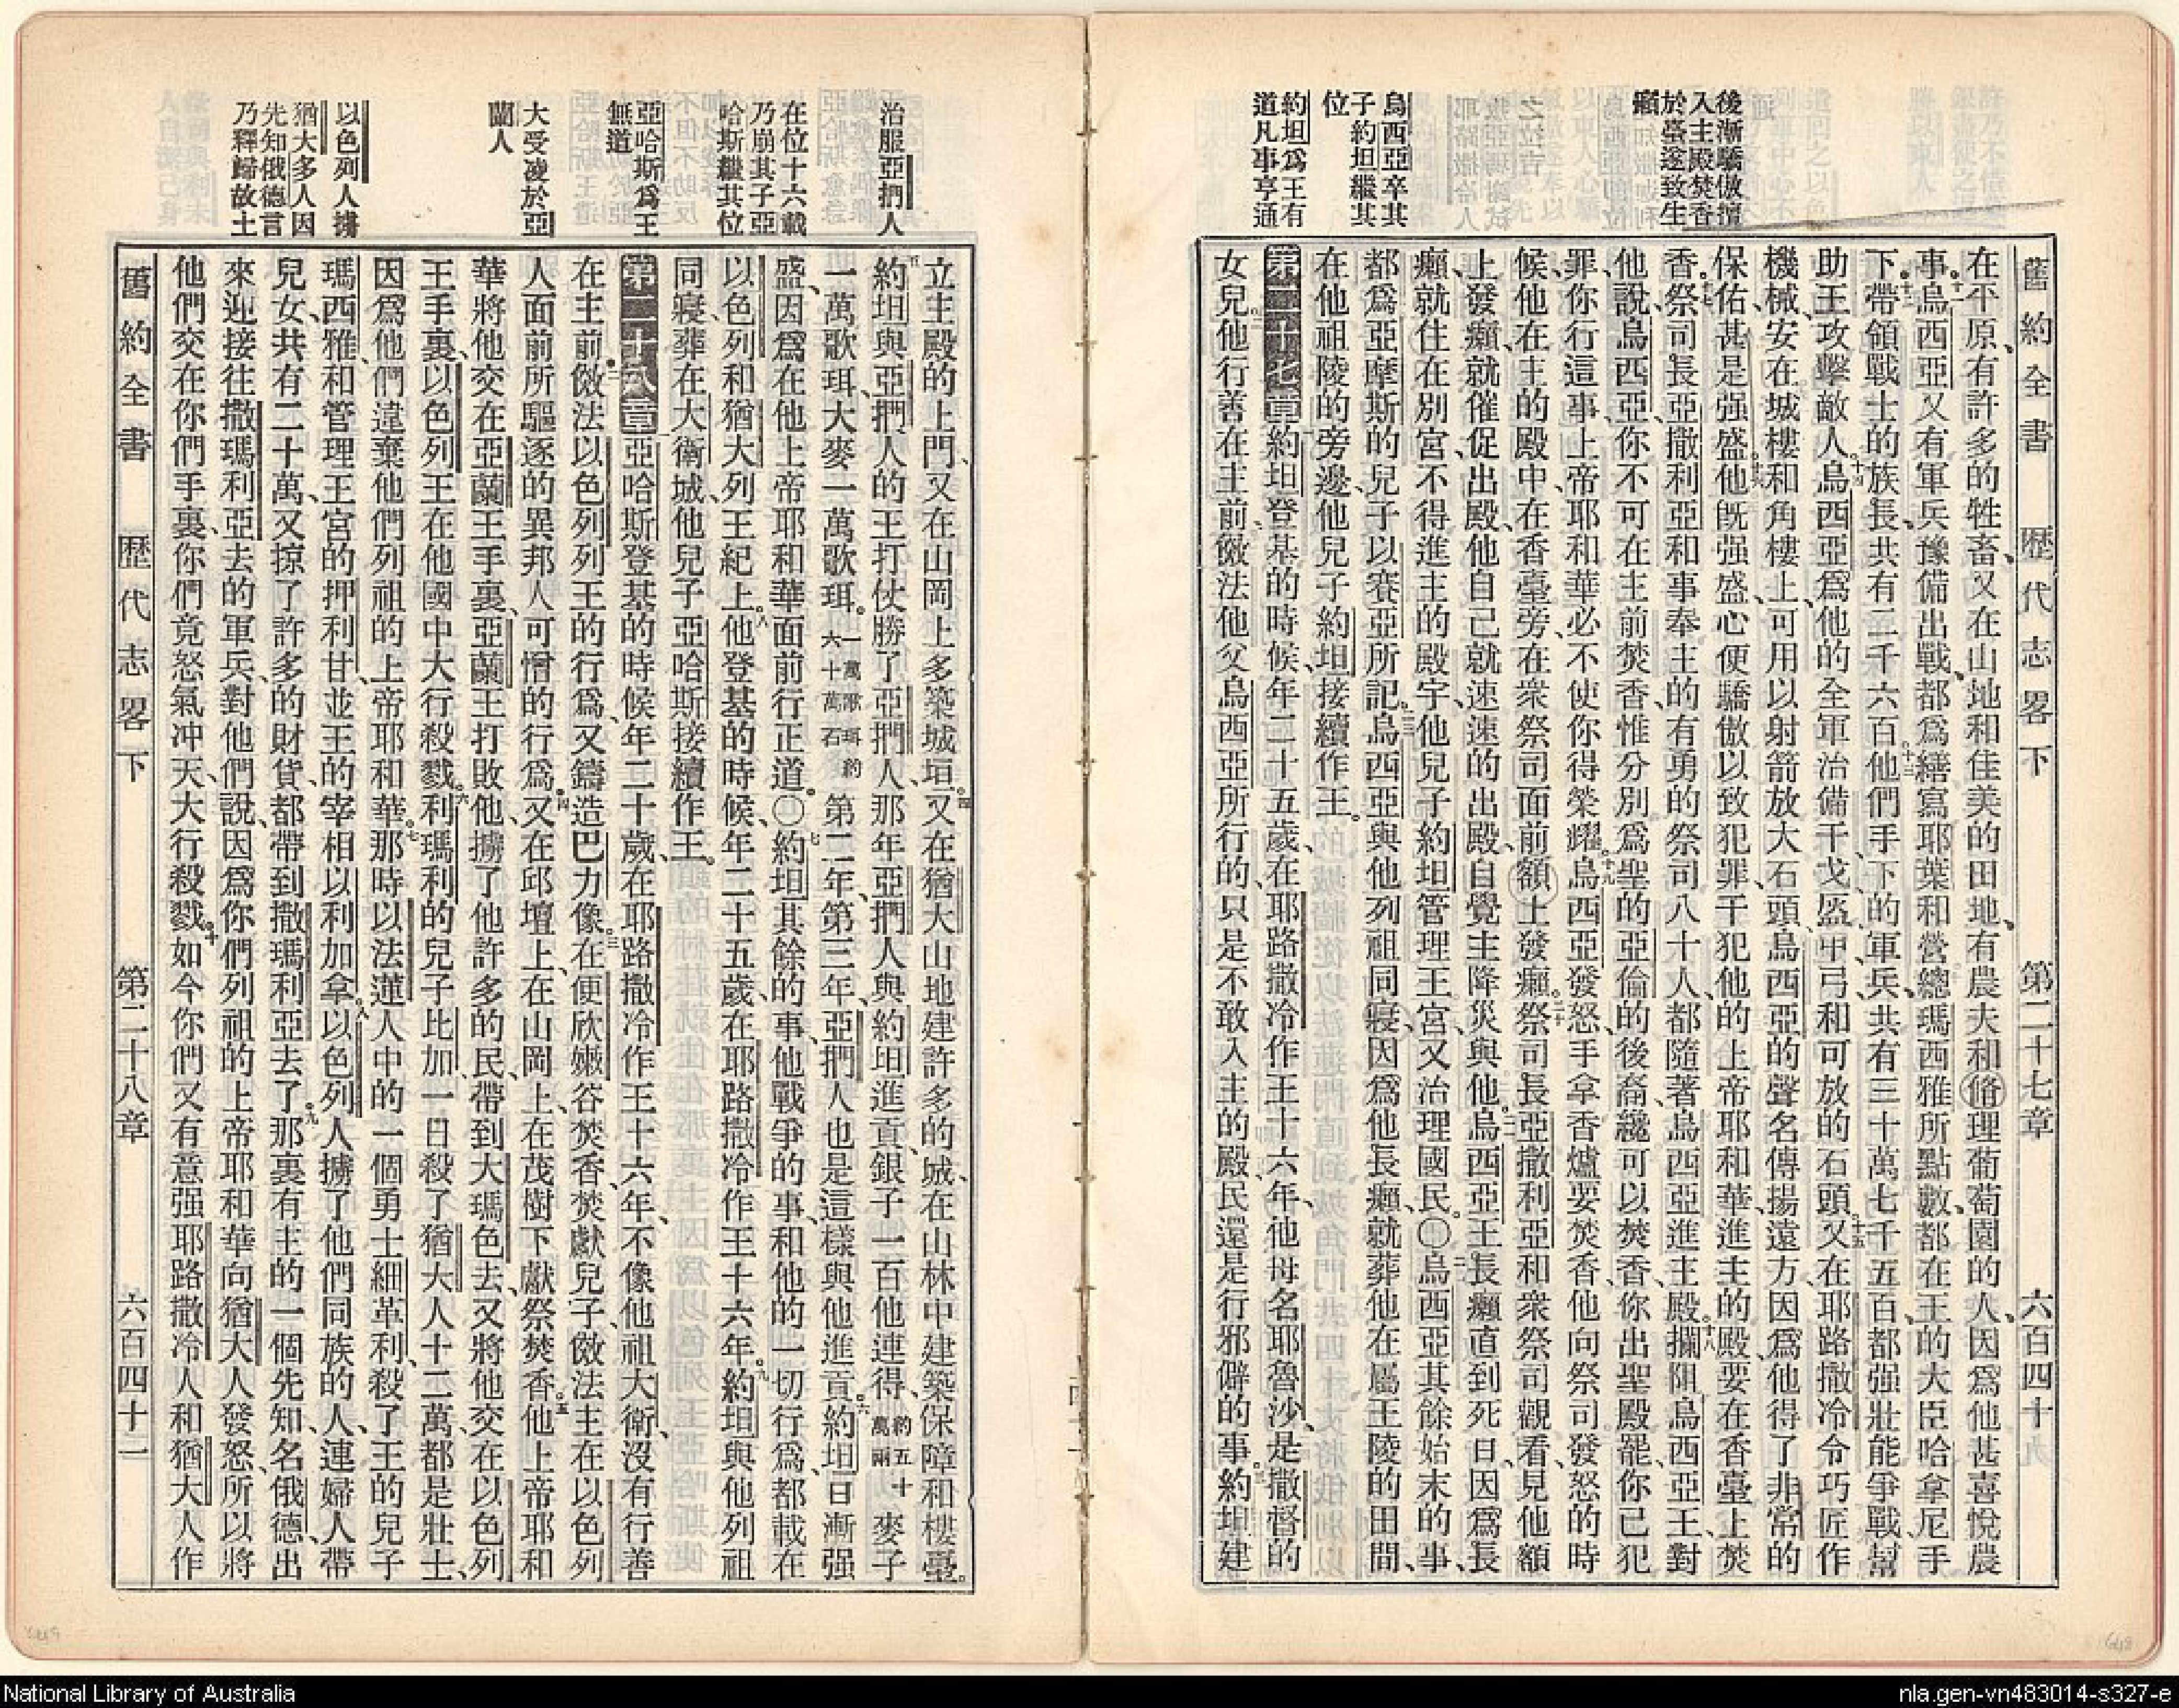 後漸驕傲擅
入主殿焚香
於臺遂致生
癩
烏西亞卒其
子約坦繼其
位
約坦爲王有
道凡事亨通
舊約全書 歷代志畧下 第二十七章 六百四十九
在平原、有許多的牲畜、又在山地和佳美的田地、有農夫和脩理葡萄園的人、因爲他甚喜悅農
事。十一烏西亞又有軍兵豫備出戰、都爲繕寫耶葉和營總瑪西雅所點數、都在王的大臣哈拿尼手
下。十二帶領戰士的族長、共有二千六百。十三他們手下的軍兵、共有三十萬七千五百、都强壯能爭戰、幫
助王攻擊敵人。十四烏西亞爲他的全軍治備干戈盔甲弓和可放的石頭。十五又在耶路撒冷令巧匠作
機械、安在城樓和角樓上、可用以射箭放大石頭、烏西亞的聲名傳揚遠方、因爲他得了非常的
保佑、甚是强盛。十六他旣强盛、心便驕傲以致犯罪、干犯他的上帝耶和華、進主的殿、要在香臺上焚
香。十七祭司長亞撒利亞和事奉主的有勇的祭司八十人、都隨著烏西亞進主殿。十八攔阻烏西亞王、對
他說、烏西亞、你不可在主前焚香、惟分別爲聖的亞倫的後裔、纔可以焚香、你出聖殿罷、你已犯
罪、你行這事、上帝耶和華必不使你得榮耀。十九烏西亞發怒、手拿香爐要焚香、他向祭司發怒的時
候、他在主的殿中、在香臺旁、在衆祭司面前、額上發癩。二十祭司長亞撒利亞和衆祭司觀看、見他額
上發癩、就催促出殿、他自己就速速的出殿、自覺主降災與他。二一烏西亞王長癩直到死日、因爲長
癩、就住在別宮、不得進主的殿宇、他兒子約坦管理王宮、又治理國民。〇二二烏西亞其餘始末的事、
都爲亞摩斯的兒子以賽亞所記。二三烏西亞與他列祖同寢、因爲他長癩、就葬他在屬王陵的田間、
在他祖陵的旁邊、他兒子約坦接續作王。
第二十七章 約坦登基的時候、年二十五歲、在耶路撒冷作王十六年、他母名耶魯沙、是撒督的
女兒。二他行善在主前、傚法他父烏西亞所行的、只是不敢入主的殿、民還是行邪僻的事。三約坦建
治服亞捫人
在位十六載
乃崩其子亞
哈斯繼其位
亞哈斯爲王
無道
大受凌於亞
蘭人
以色列人擄
猶大多人因
先知俄德言
乃釋歸故土
立主殿的上門、又在山岡上多築城垣。四又在猶大山地建許多的城、在山林中建築保障和樓臺。
五約坦與亞捫人的王打仗、勝了亞捫人、那年亞捫人與約坦進貢、銀子一百他連得、約五十萬兩麥子
一萬歌珥、大麥一萬歌珥。一萬歌珥約六十萬石第二年、第三年、亞捫人也是這樣與他進貢。六約坦日漸强
盛、因爲在他上帝耶和華面前行正道。〇七約坦其餘的事、他戰爭的事、和他的一切行爲、都載在
以色列和猶大列王紀上。八他登基的時候、年二十五歲、在耶路撒冷作王十六年。九約坦與他列祖
同寢、葬在大衛城、他兒子亞哈斯接續作王。
第二十八章 亞哈斯登基的時候、年二十歲、在耶路撒冷作王十六年、不像他祖大衛、沒有行善
在主前。二傚法以色列列王的行爲、又鑄造巴力像。三在便欣嫩谷焚香、焚獻兒子、傚法主在以色列
人面前所驅逐的異邦人可憎的行爲。四又在邱壇上、在山岡上、在茂樹下、獻祭焚香。五他上帝耶和
華將他交在亞蘭王手裏、亞蘭王打敗他、擄了他許多的民、帶到大瑪色去、又將他交在以色列
王手裏、以色列王在他國中大行殺戮。六利瑪利的兒子比加、一日殺了猶大人十二萬、都是壯士、
因爲他們違棄他們列祖的上帝耶和華。七那時以法蓮人中的一個勇士細革利、殺了王的兒子
瑪西雅、和管理王宮的押利甘、並王的宰相以利加拿。八以色列人擄了他們同族的人、連婦人帶
兒女、共有二十萬、又掠了許多的財貨、都帶到撒瑪利亞去了。九那裏有主的一個先知、名俄德、出
來迎接往撒瑪利亞去的軍兵、對他們說、因爲你們列祖的上帝耶和華向猶大人發怒、所以將
他們交在你們手裏、你們竟怒氣冲天、大行殺戮。十如今你們又有意强耶路撒冷人和猶大人作
舊約全書 歷代志畧下 第二十八章 六百四十一
National Library of Australia
nla.gen-vn483014-s327-e